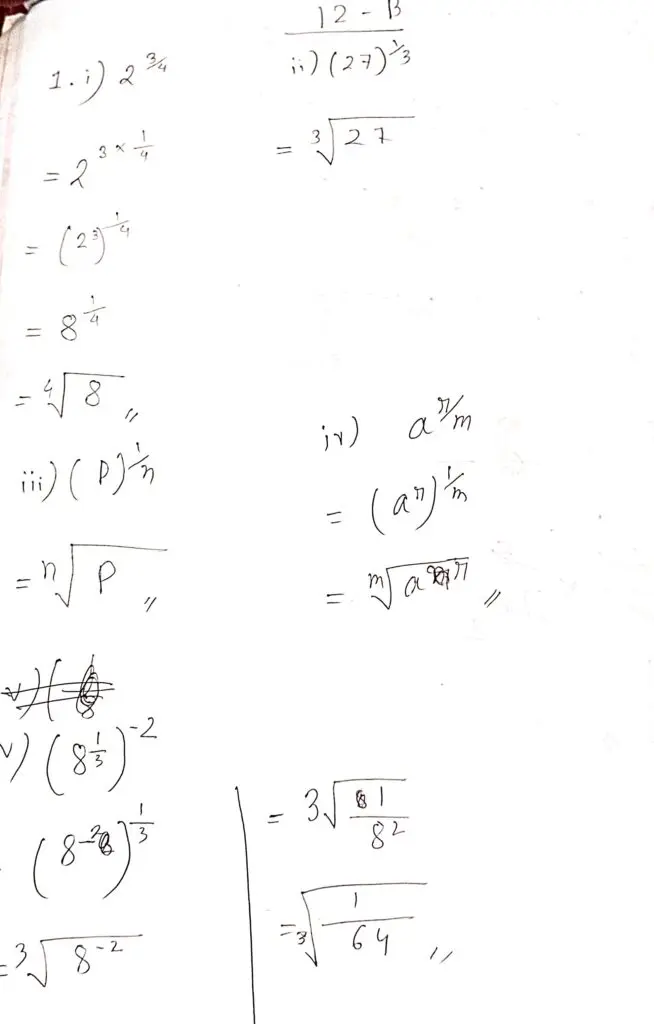 12 - B
1. i) 2^(3/4)
= 2^(3 × 1/4)
= (2^3)^(1/4)
= 8^(1/4)
= ∜8 〃
ii) (27)^(1/3)
= ∛27
iii) (P)^(1/n)
= ⁿ√P 〃
iv) a^(r/m)
= (a^r)^(1/m)
= ᵐ√(a^r) 〃
v) (8^(1/3))^-2
(8^-2)^(1/3)
= ∛(8^-2)
= ∛(1/8^2)
= ∛(1/64) 〃